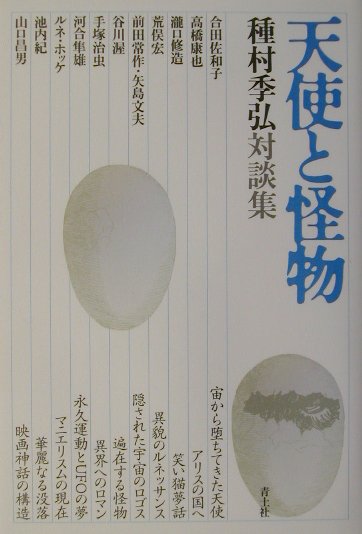 天使と怪物
種村季弘対談集
合田佐和子
宙から堕ちてきた天使
高橋康也
アリスの国へ
瀧口修造
笑い猫夢話
荒俣宏
異貌のルネッサンス
前田常作・矢島文夫
隠された宇宙のロゴス
谷川渥
遍在する怪物
手塚治虫
異界へのロマン
河合隼雄
永久運動とUFOの夢
ルネ・ホッケ
マニエリスムの現在
池内紀
華麗なる没落
山口昌男
映画神話の構造
青土社